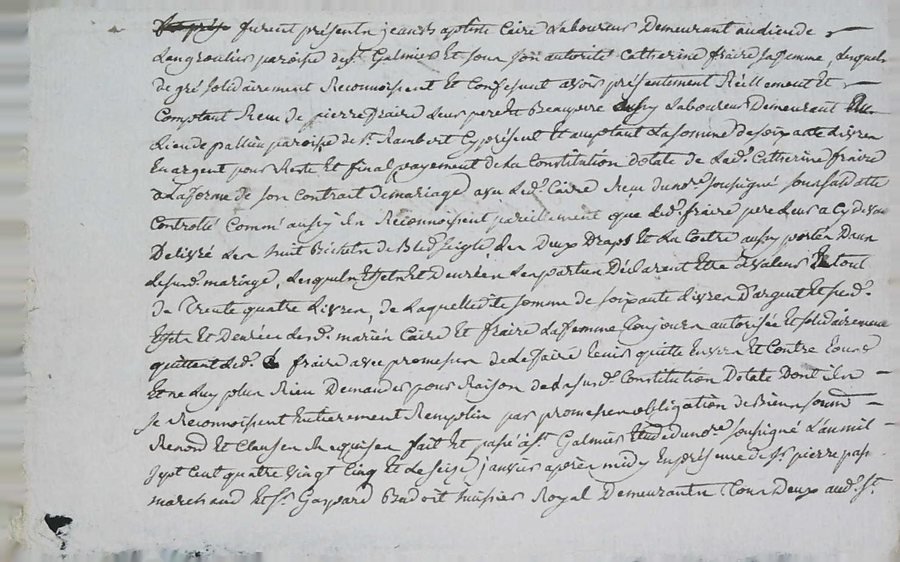 furent présents jean baptiste Caire Laboureur Demeurant audieu de
Langroulier paroisse de st. Galmier Et sous son autorité Catherine fraire sa femme, Lesquels
de gré solidairement Reconnoissent Et Confessent avoir présentement Réellement Et
Comptant Reçu de pierre fraire Leur pere Et Beaupere aussy Laboureur Demeurant au
Lieu de pallieu paroisse de st. Rambert Cy présent Et acceptant La somme de soixante Livres
En argent pour Reste Et final payement de La Constitution Dotale de Lad. Catherine fraire
a La forme de son Contract de mariage avec Led. Caire Reçu du nore. soussigné sous sa datte
Controllé Comm' aussy ils Reconnoissent pareillement que Led. fraire pere Leur a Cy devant
Delivré Les huit Bichets de Bled seigle, Les Deux Draps Et La Coetre aussy portés Dans
Le susd. mariage, Lesquels Effets Et Denrées Les parties Déclarent Etre De valeur En tout
De Trente quatre Livres, de Laquelle dite somme de soixante Livres D'argent Et susd.
Effets Et Denrées Lesd. mariés Caire Et fraire La femme Toujours autorisée Et solidairement
quittent Led. fraire avec promesse de Le faire tenir quitte Envers Et Contre Tous
Et ne Luy plus Rien Demander pour Raison de La susd. Constitution Dotale Dont ils
se Reconnoissent Entierement Remplis par promesses obligation de Biens soumis
Renond Et Clauses Requises fait Et passé à st. Galmier Etude du nore. soussigné L'an mil
sept Cent quatre vingt Cinq Et Le seize janvier après midy En présence de sr. pierre
marchand Et sr. Gaspard Badoit huissier Royal Demeurants Tous Deux aud. st.